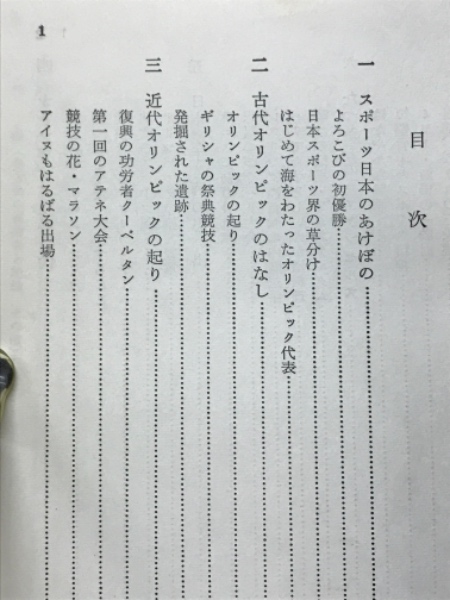 目次
一 スポーツ日本のあけぼの
よろこびの初優勝
日本スポーツ界の草分け
はじめて海をわたったオリンピック代表
二 古代オリンピックのはなし
オリンピックの起り
ギリシャの祭典競技
発掘された遺跡
三 近代オリンピックの起り
復興の功労者クーベルタン
第一回のアテネ大会
競技の花・マラソン
アイヌもはるばる出場
1